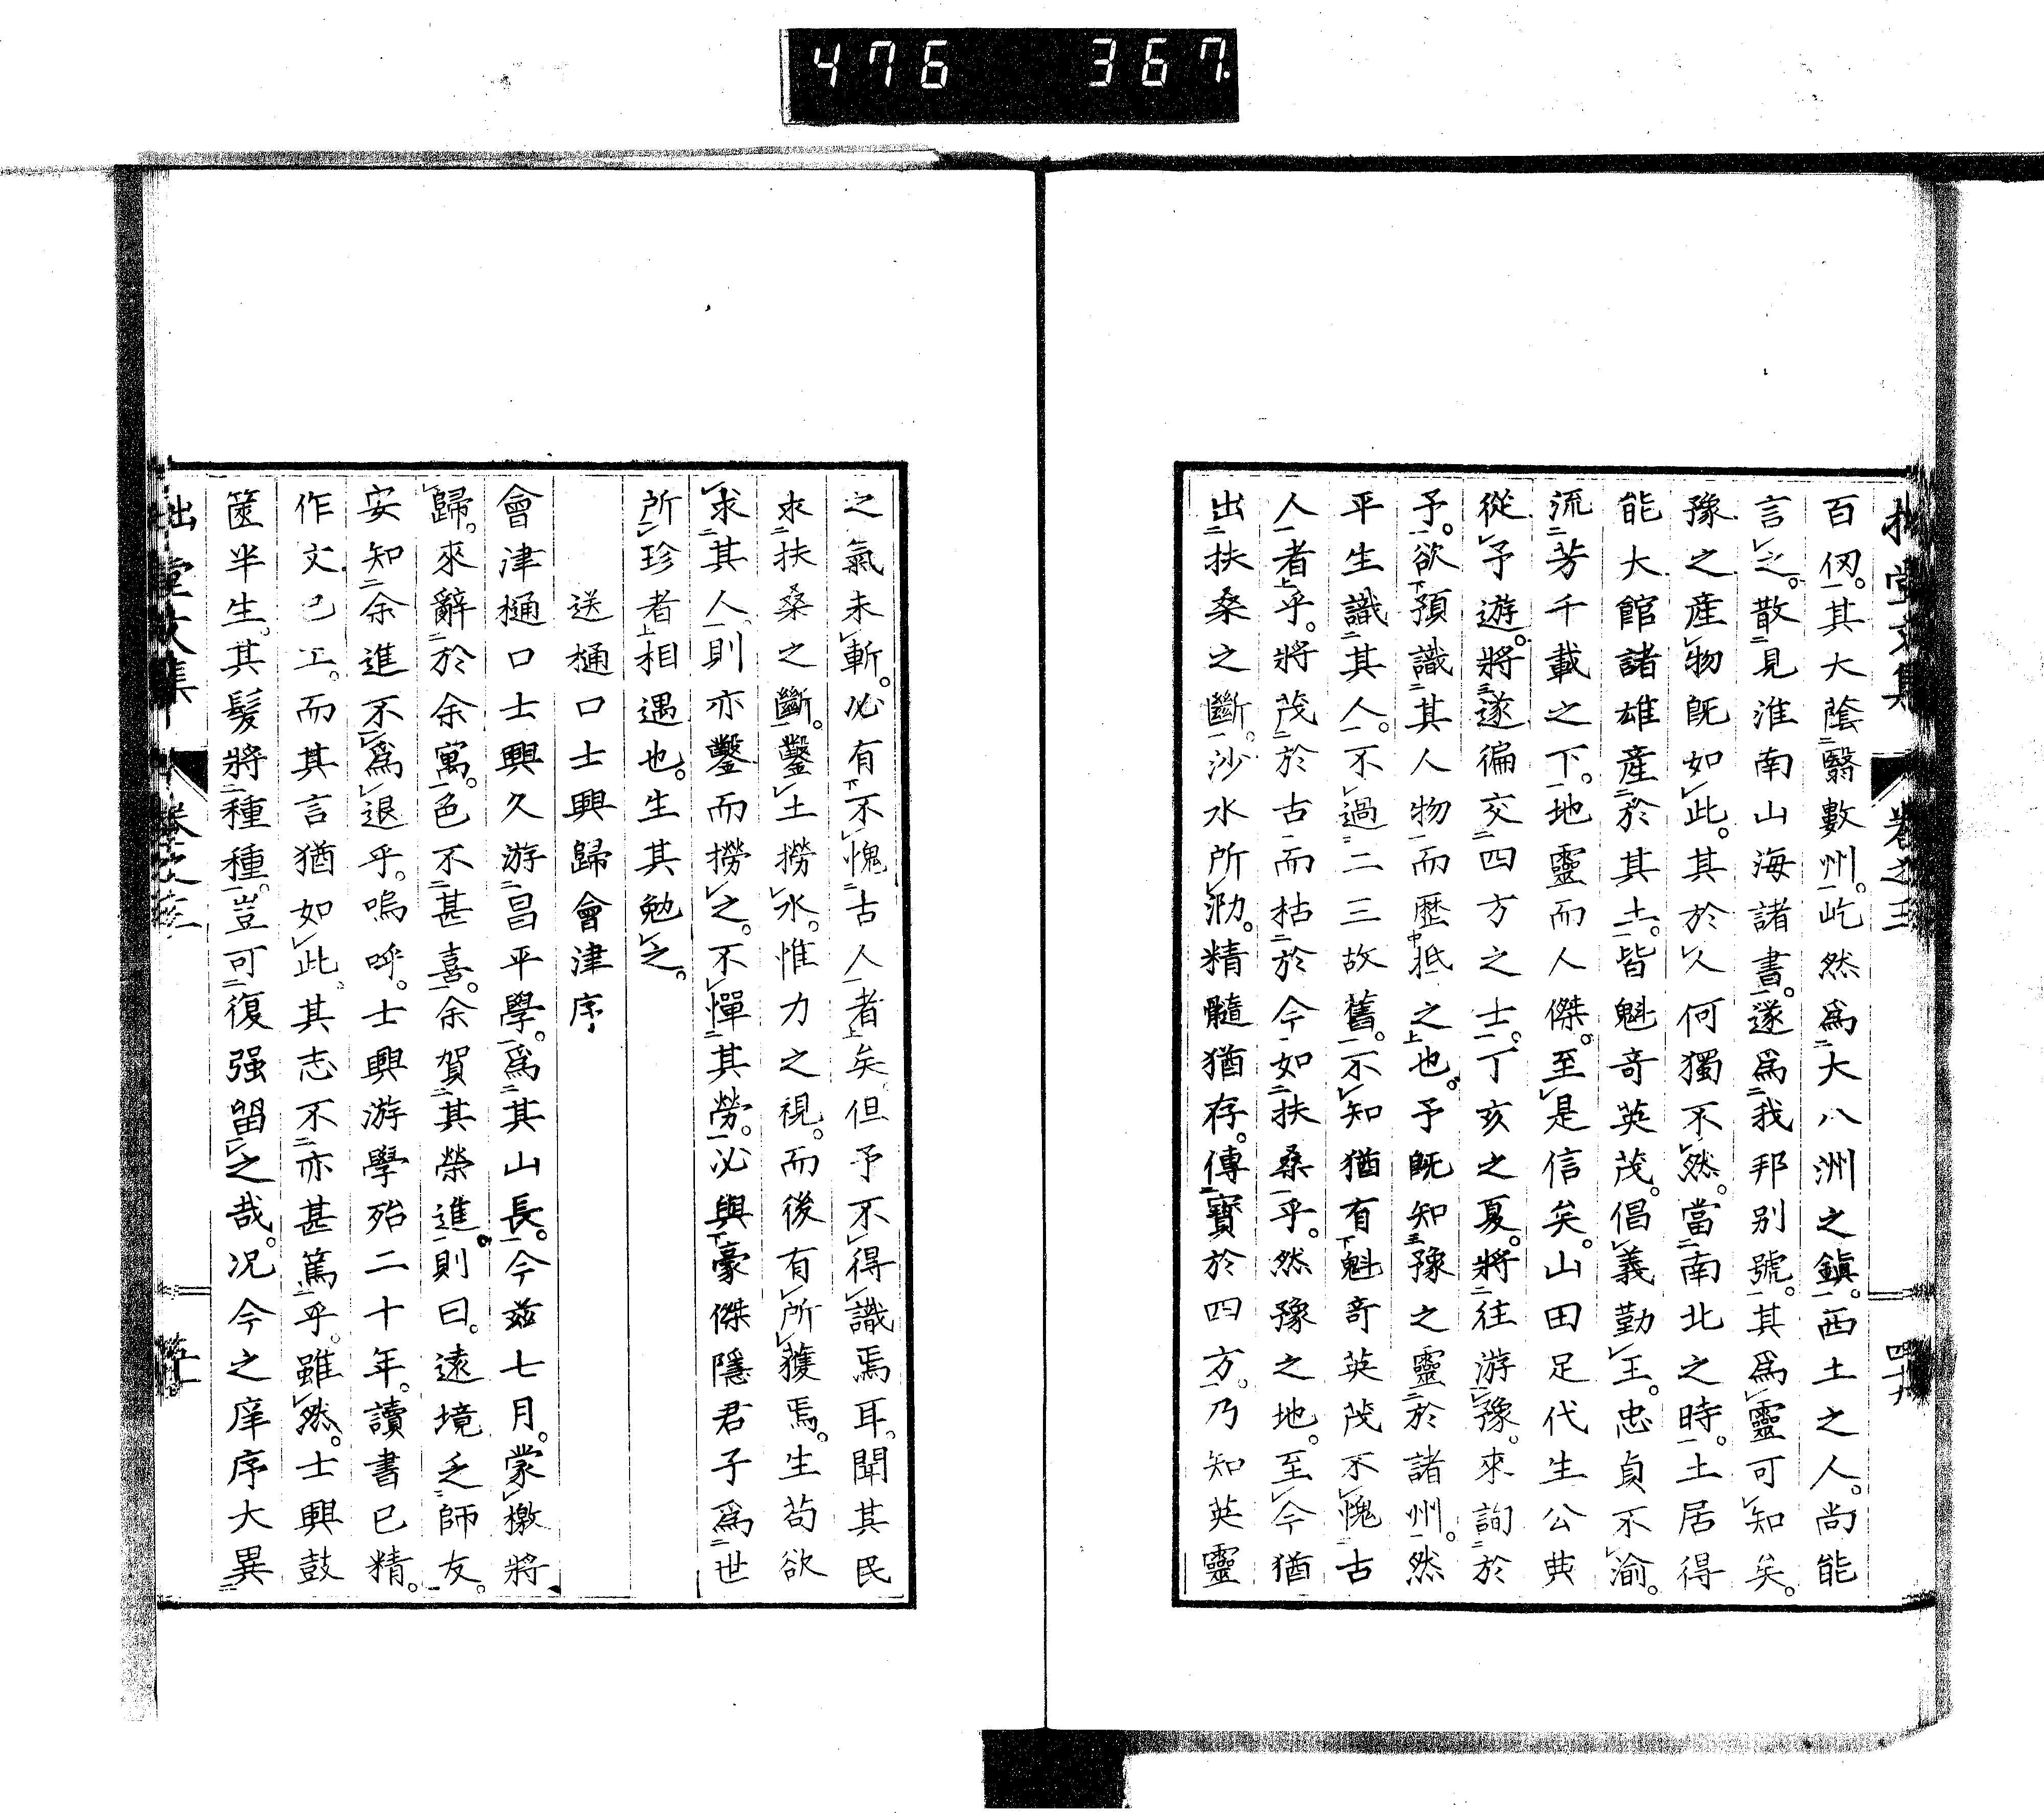 476 367
拙堂文集 卷之三 四十九
百仞。其大蔭翳數州。屹然爲大八洲之鎭。西土之人。尚能
言之。散見淮南山海諸書。遂爲我邦别號。其爲靈可知矣。
豫之產物既如此。其於人何獨不然。當南北之時。土居得
能大館諸雄產於其土。皆魁奇英茂。倡義勤王。忠貞不渝。
流芳千載之下。地靈而人傑。至是信矣。山田足代生公典
從予遊。將遂徧交四方之士。丁亥之夏。將往游豫。來詢於
予。欲預識其人物而歷抵之也。予既知豫之靈於諸州。然
平生識其人。不過二三故舊。不知猶有魁奇英茂不愧古
人者乎。將茂於古而枯於今如扶桑乎。然豫之地。至今猶
出扶桑之斷。沙水所泐。精髓猶存。傳寶於四方。乃知英靈
之氣未斬。必有不愧古人者矣。但予不得識焉耳。聞其民
求扶桑之斷。鑿土撈水。惟力之視。而後有所獲焉。生苟欲
求其人。則亦鑿而撈之。不憚其勞。必與豪傑隱君子爲世
所珍者相遇也。生其勉之。
送樋口士興歸會津序
會津樋口士興久游昌平學。爲其山長。今茲七月。蒙檄將
歸。來辭於余寓。色不甚喜。余賀其榮進。則曰。遠境乏師友。
安知余進不爲退乎。嗚呼。士興游學殆二十年。讀書已精。
作文已工。而其言猶如此。其志不亦甚篤乎。雖然。士興鼓
篋半生。其髮將種種。豈可復强留之哉。况今之庠序大異
拙堂文集 卷之三